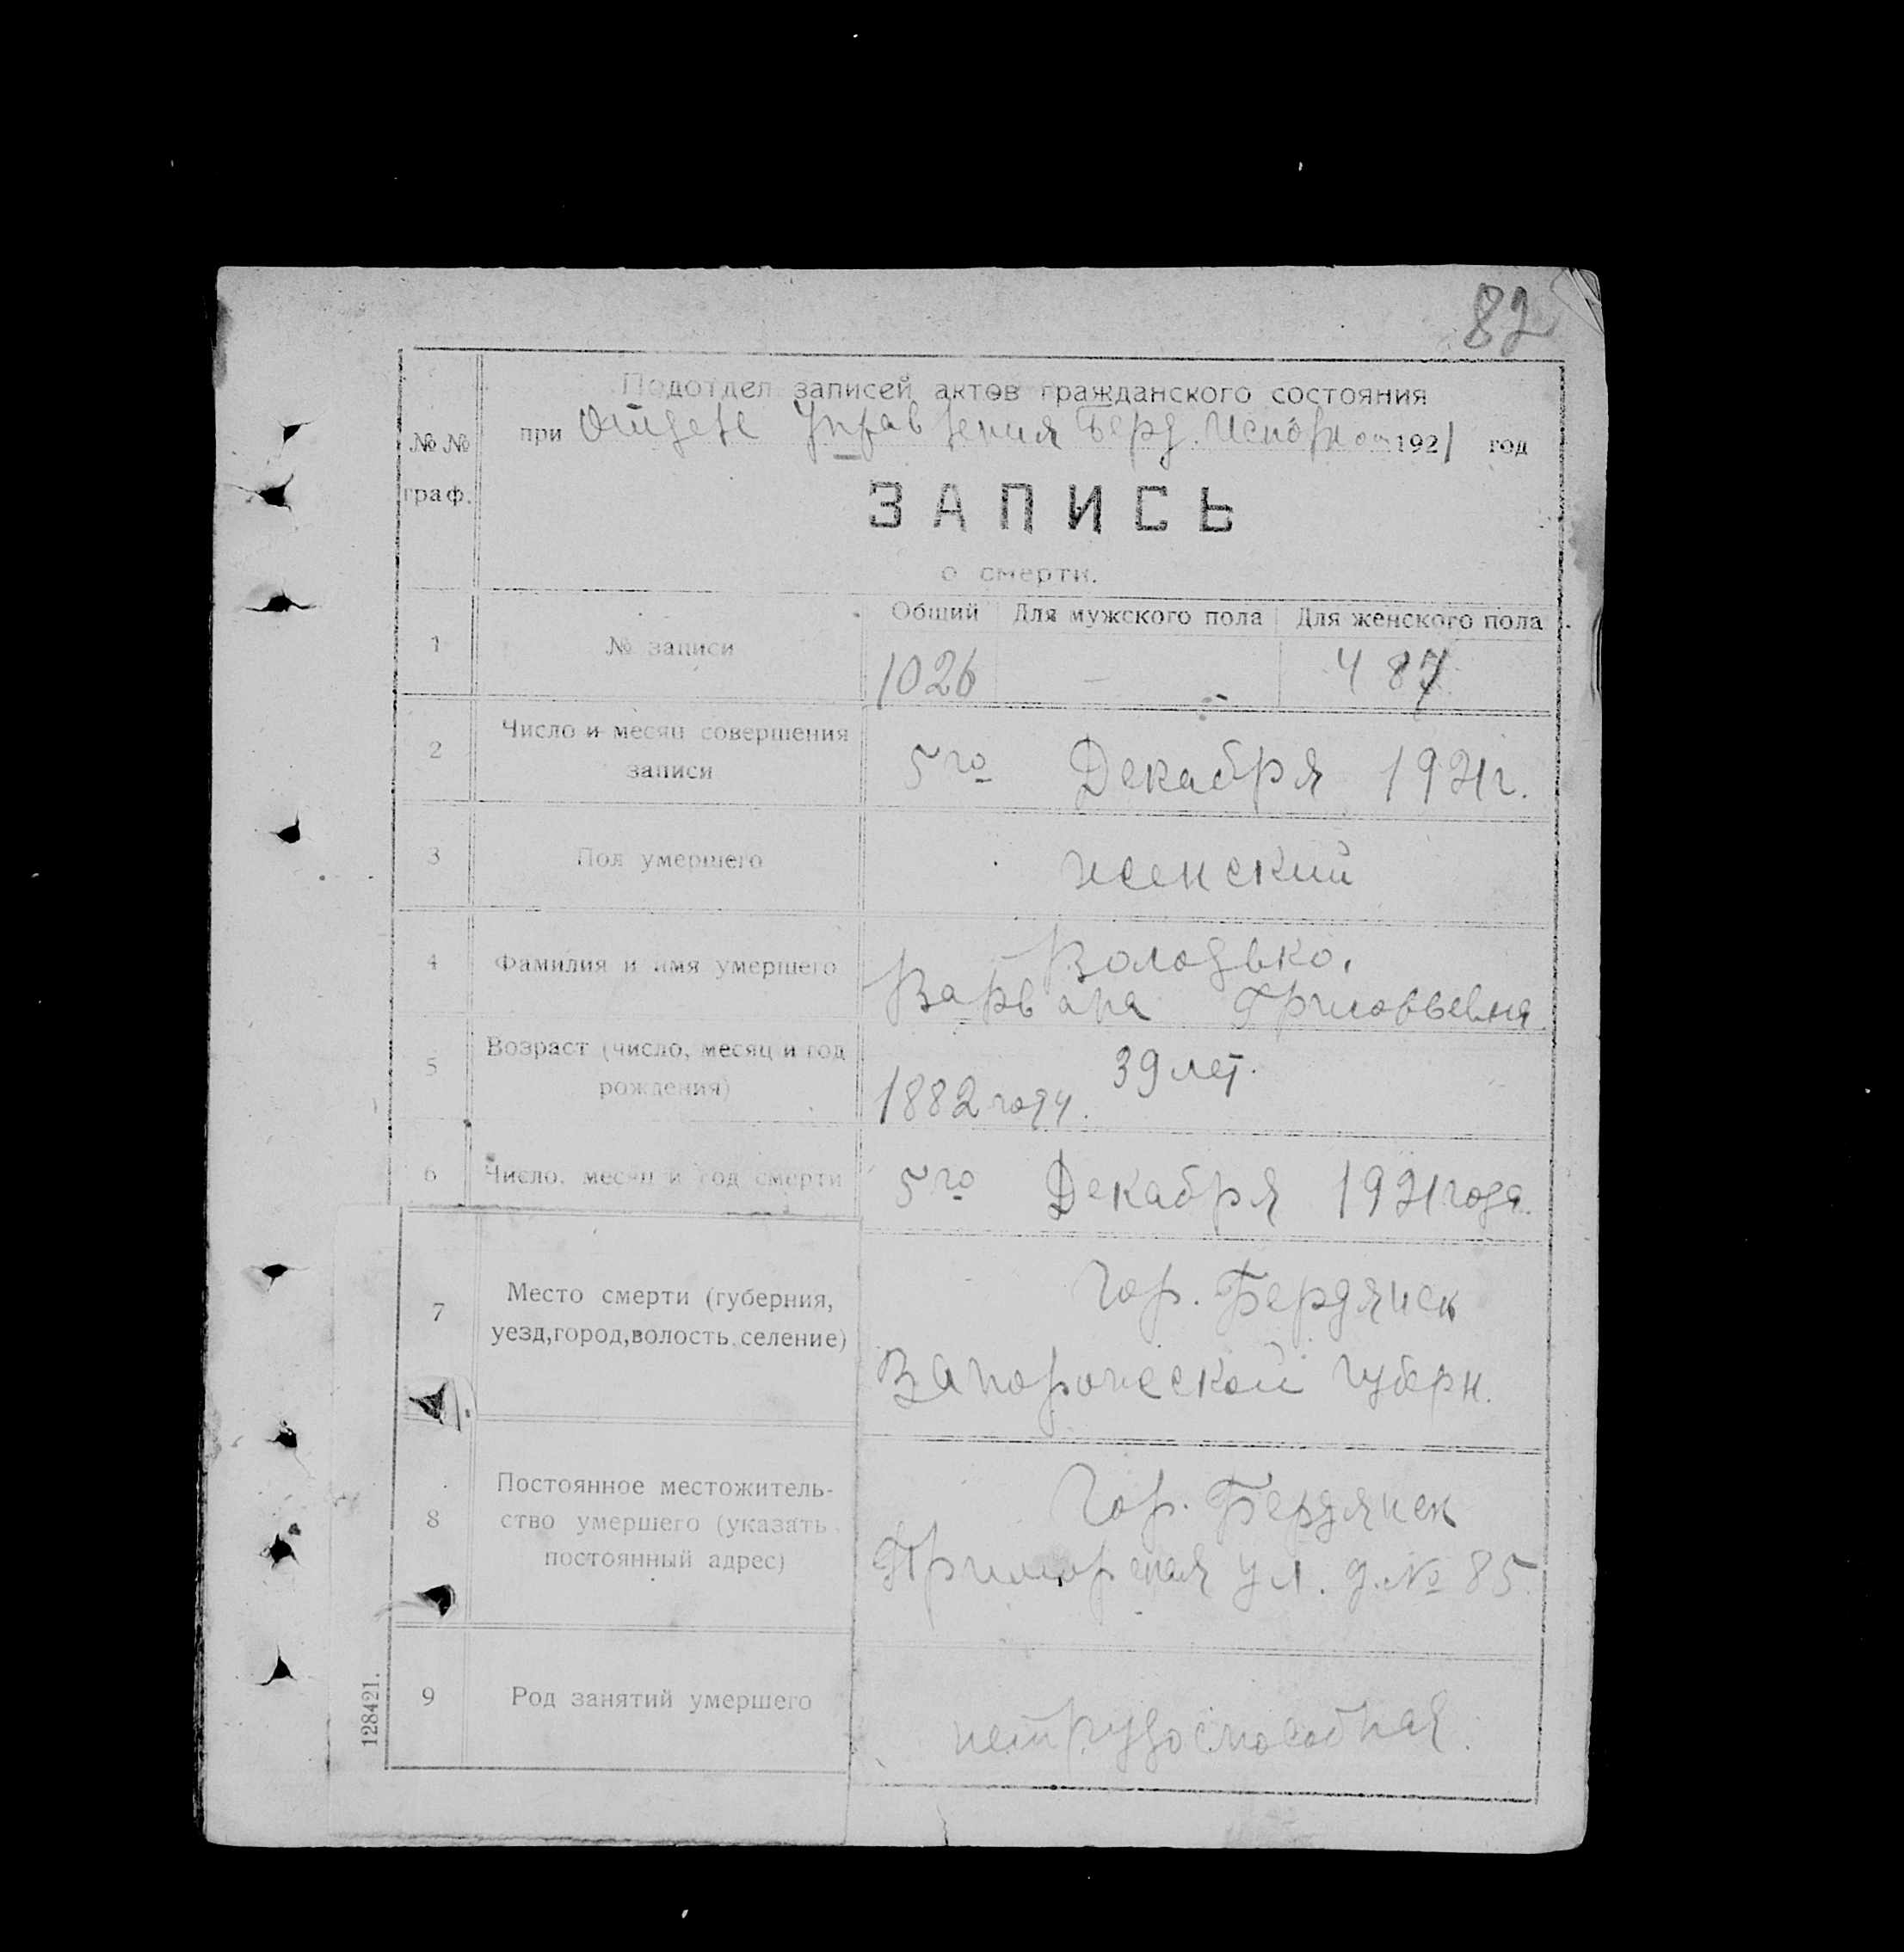 82
Подотдел записей актов гражданского состояния
при Отделе Управления Берд. 1921 год
№№ граф.
ЗАПИСЬ
о смерти.
Общий Для мужского пола Для женского пола
1 № записи 1026 - 487
2 Число и месяц совершения записи 5го Декабря 1921г.
3 Пол умершего женский
4 Фамилия и имя умершего Володько,
Варвара
5 Возраст (число, месяц и год рождения) 39 лет.
1882 году.
6 Число, месяц и год смерти 5го Декабря 1921 года.
7 Место смерти (губерния, уезд, город, волость, селение)
Гор. Бердянск
Запорожской губерн.
8 Постоянное местожитель-
ство умершего (указать
постоянный адрес)
Гор. Бердянск
Приморская ул. д. № 85.
9 Род занятий умершего нетрудоспособная.
128421.